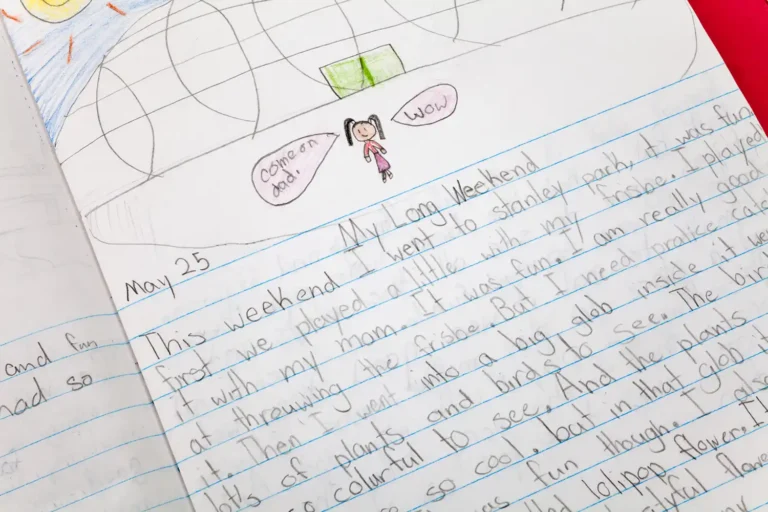 wow
come on
dad.
My Long Weekend
May 25
This weekend I went to stanley park, it was fun
first we played a little with my frisbe. I played
it with my mom. It was fun. I am really good
at throwing the frisbe. But I need pratice
it. Then I went into a big glob inside it
lots of plants and birds to see. The
colorful to see. And the plants
so cool. but in that glob it
fun though. I
lolipop flower.
and fun
had so